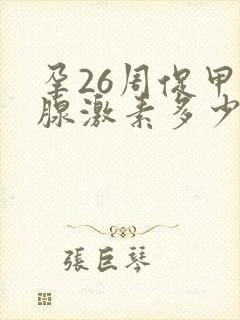 孕26周促甲
腺激素多少
張巨琴